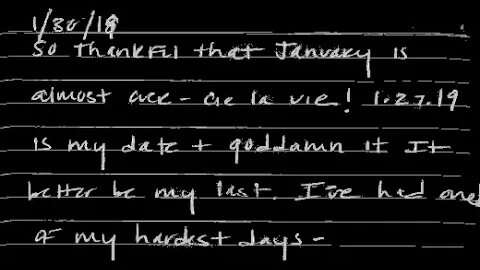 1/30/19
So thankful that January is
almost over - cie la vie! 1.27.19
is my date + goddamn it It
better be my last. I've had one
of my hardest days -